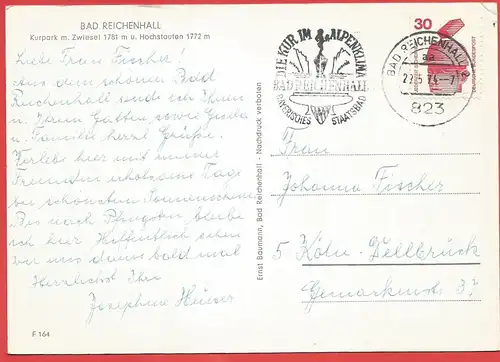 BAD REICHENHALL
Kurpark m. Zwiesel 1781 m u. Hochstaufen 1772 m
Liebe Frau Fischer!
Aus dem schönen Bad
Reichenhall sende ich Ihnen
u. Ihrem Gatten, sowie Gisela
u. Familie herzl. Grüße.
Verlebe hier mit meiner
Freundin erholsame Tage
bei schönstem Sonnenschein.
Bis nach Pfingsten bleibe
ich hier. Hoffentlich sehen
wir uns dann bald mal
Herzlichst Ihre
Josephine
F 164
Ernst Baumann, Bad Reichenhall - Nachdruck verboten
DIE KUR IM ALPENKLIMA
BAD REICHENHALL
BAYERISCHES STAATSBAD
BAD REICHENHALL 2
aa
823
30
Frau
Johanna Fischer
5 Köln-Dellbrück
Gemarkenstr. 37